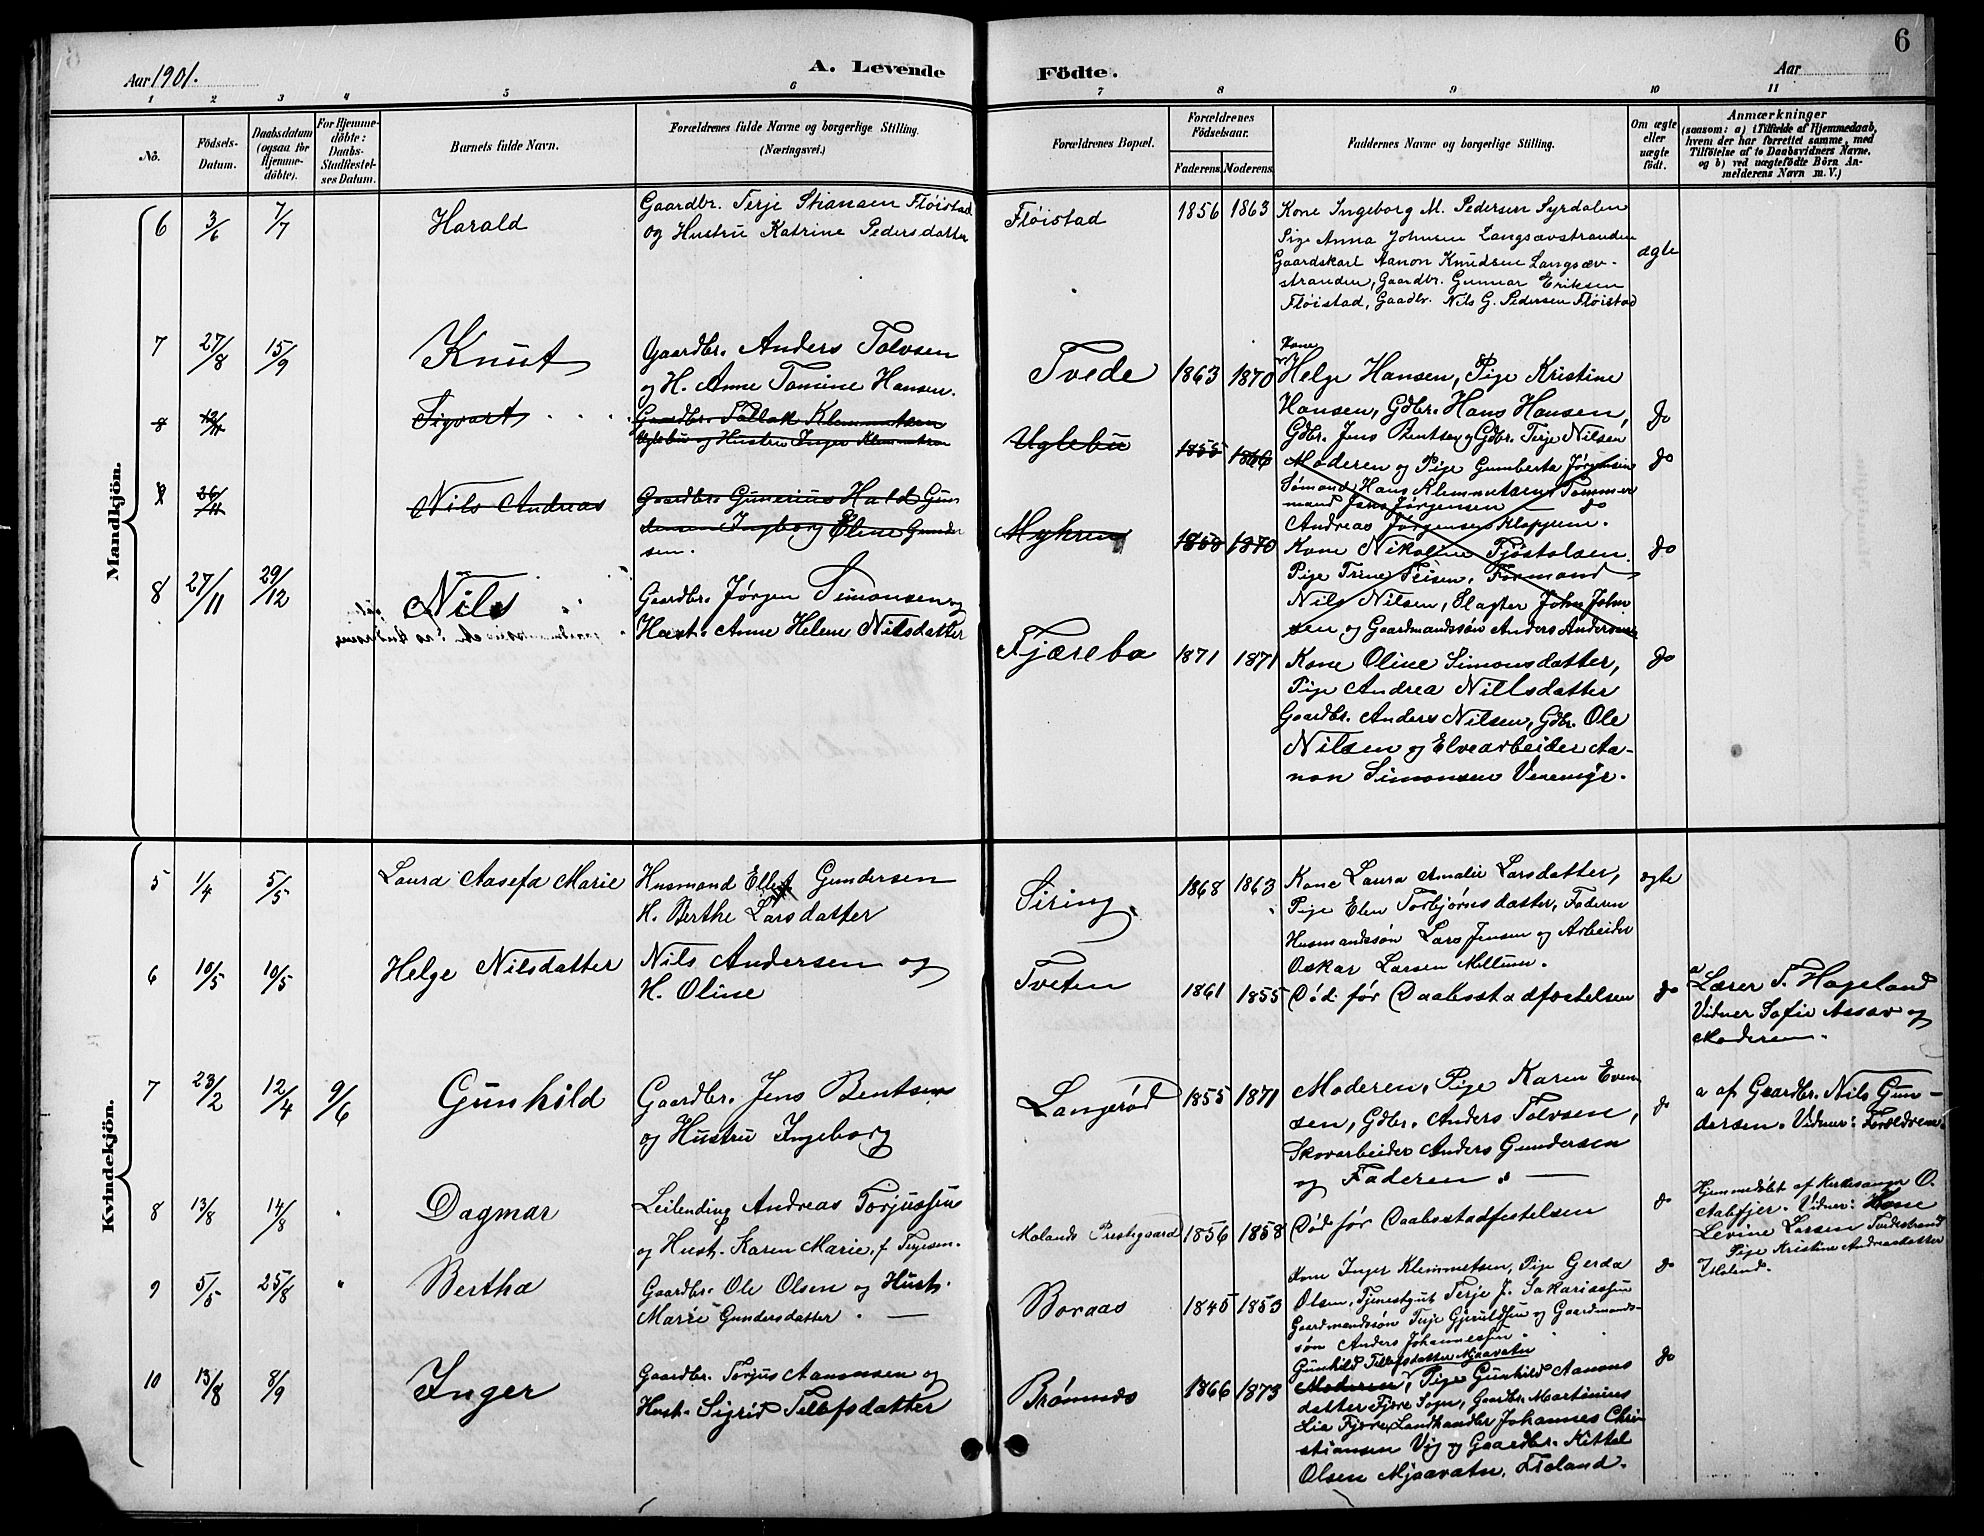 Aar 1901.
A. Levende
Födte.
Aar
6
1 2 3 4 5 6 7 8 9 10 11
No.
Födsels-
Datum.
Daabsdatum
(ogsaa for
Hjemme-
döbte).
For Hjemme-
döbte:
Daabs-
Stadfæstel-
ses Datum.
Barnets fulde Navn.
Forældrenes fulde Navne og borgerlige Stilling.
(Næringsvei.)
Forældrenes Bopæl.
Forældrenes
Födselsaar.
Faderens. Moderens.
Faddernes Navne og borgerlige Stilling.
Om ægte
eller
uægte
födt.
Anmærkninger
(saasom: a) i Tilfælde af Hjemmedaab,
hvem der har forrettet samme, med
Tilföielse af to Daabsvidners Navne,
og b) ved uægtefödte Börn An-
melderens Navn m. V.)
Mandkjön.
6 3/6 7/7 Harald
Gaardbr. Terje Stiansen Fløistad
og Hustru Katrine Pedersdatter
Fløistad 1856 1863
Kone Ingeborg M. Pedersen Syrdalen
Pige Anna Johnsen Langsævstranden
Gaardskarl Aanon Knudsen Langsæv-
stranden, Gaardbr. Gunnar Eriksen
Fløistad, Gaadbr. Nils G. Pedersen Fløistad
ægte
7 27/8 15/9 Knut
Gaardbr. Anders Tolvsen
og H. Anne Tomine Hansen.
Tvede 1863 1870
Kone
Helge Hansen, Pige Kristine
Hansen, Gdbr. Hans Hansen,
Gdbr. Jens Bentsen og Gdbr. Terje Nilsen
do
8 12/11 Sigvart
Gaardbr. Tallak Klemmetsen
Uglebu og Hustru Inger Klemmetsen
Uglebu 1855 1866
Moderen og Pige Gumberta Jørgensen
Sømand Hans Klemmetsen, Tømmer
mand Jens Jørgensen — do
Andreas Jørgensen Kloppene.
do
8 26/11 Nils Andreas
Gaardbr. Gunerius Hald Gun
dersen Ingborg Eline Gunder
sen.
Myhren 1850 1870
Kone Nikoline Fjøstolsen
Pige Trine Teisen, Formand
Nils Nilsen, Slagter John John
sen og Gaardmandssøn Anders Andersen
do
8 27/11 29/12 Nils
Gaardbr. Jørgen Simonsen og
Hust. Anne Helene Nilsdatter
Fjærebo 1871 1871
Kone Oline Simonsdatter,
Pige Andrea Nillsdatter
Gaardbr. Anders Nilsen, Gdbr. Ole
Nilsen og Elvearbeider Aa-
non Simonsen Vennemyr.
do
Kvindekjön.
5 1/4 5/5 Laura Aasefa Marie
Husmand Ellef Gundersen
H. Berthe Larsdatter
Siring 1868 1863
Kone Laura Amalie Larsdatter,
Pige Elen Torbjørnsdatter, Faderen
Husmandssøn Lars Jensen og Arbeider
Oskar Larsen Mellum.
ægte
6 10/5 10/5 Helge Nilsdatter
Nils Andersen og
H. Oline
Tveten 1861 1855
Død før Daabsstadfæstelsen
do
a Lærer T. Hageland
Vidner Sofie Assav og
Moderen.
7 23/2 12/4 9/6 Gunhild
Gaardbr. Jens Bentsen
og Hustru Ingeborg
Langerød 1855 1871
Moderen, Pige Karen Even
sen, Gdbr. Anders Tolvsen,
Skovarbeider Anders Gundersen
og Faderen.
do
a af Gaardbr. Nils Gun-
dersen. Vidner: Forældrene.
8 13/8 14/8 " Dagmar
Leilending Andreas Torjussen
og Hust. Karen Marie, f. Terjesen.
Molands Prestegaard 1856 1858
Død før Daabsstadfestelsen
do
Hjemmedøbt af Kirkesanger O.
Aabøfjer. Vidner: Kone
Levine Larsen Tvedestrand
og Pige Kristine Andreasdatter
Moland.
9 5/5 25/8 " Bertha
Gaardbr. Ole Olsen og Hust.
Marie Gundersdatter.
Boraas 1845 1853
Kone Inger Klemmetsen, Pige Gerda
Olsen, Tjenestgut Terje J. Sakariassen
Gaardmandssøn Terje Gjeruldsen og Gaardmands-
søn Anders Johannessen
do
10 13/8 8/9 Inger
Gaardbr. Torjus Aanonsen og
Hust. Sigrid Tellefsdatter
Brømnes 1866 1873
Gunhild Tellefsdatter Mjaavatn
Moderen, Pige Gunhild Aanons
datter Fjære Sogn, Gaardbr. Martinius
Lia Fjære, Landhandler Johannes Chri-
stiansen Vig og Gaardbr. Kittel
Olsen Mjaavatn, Froland.
do